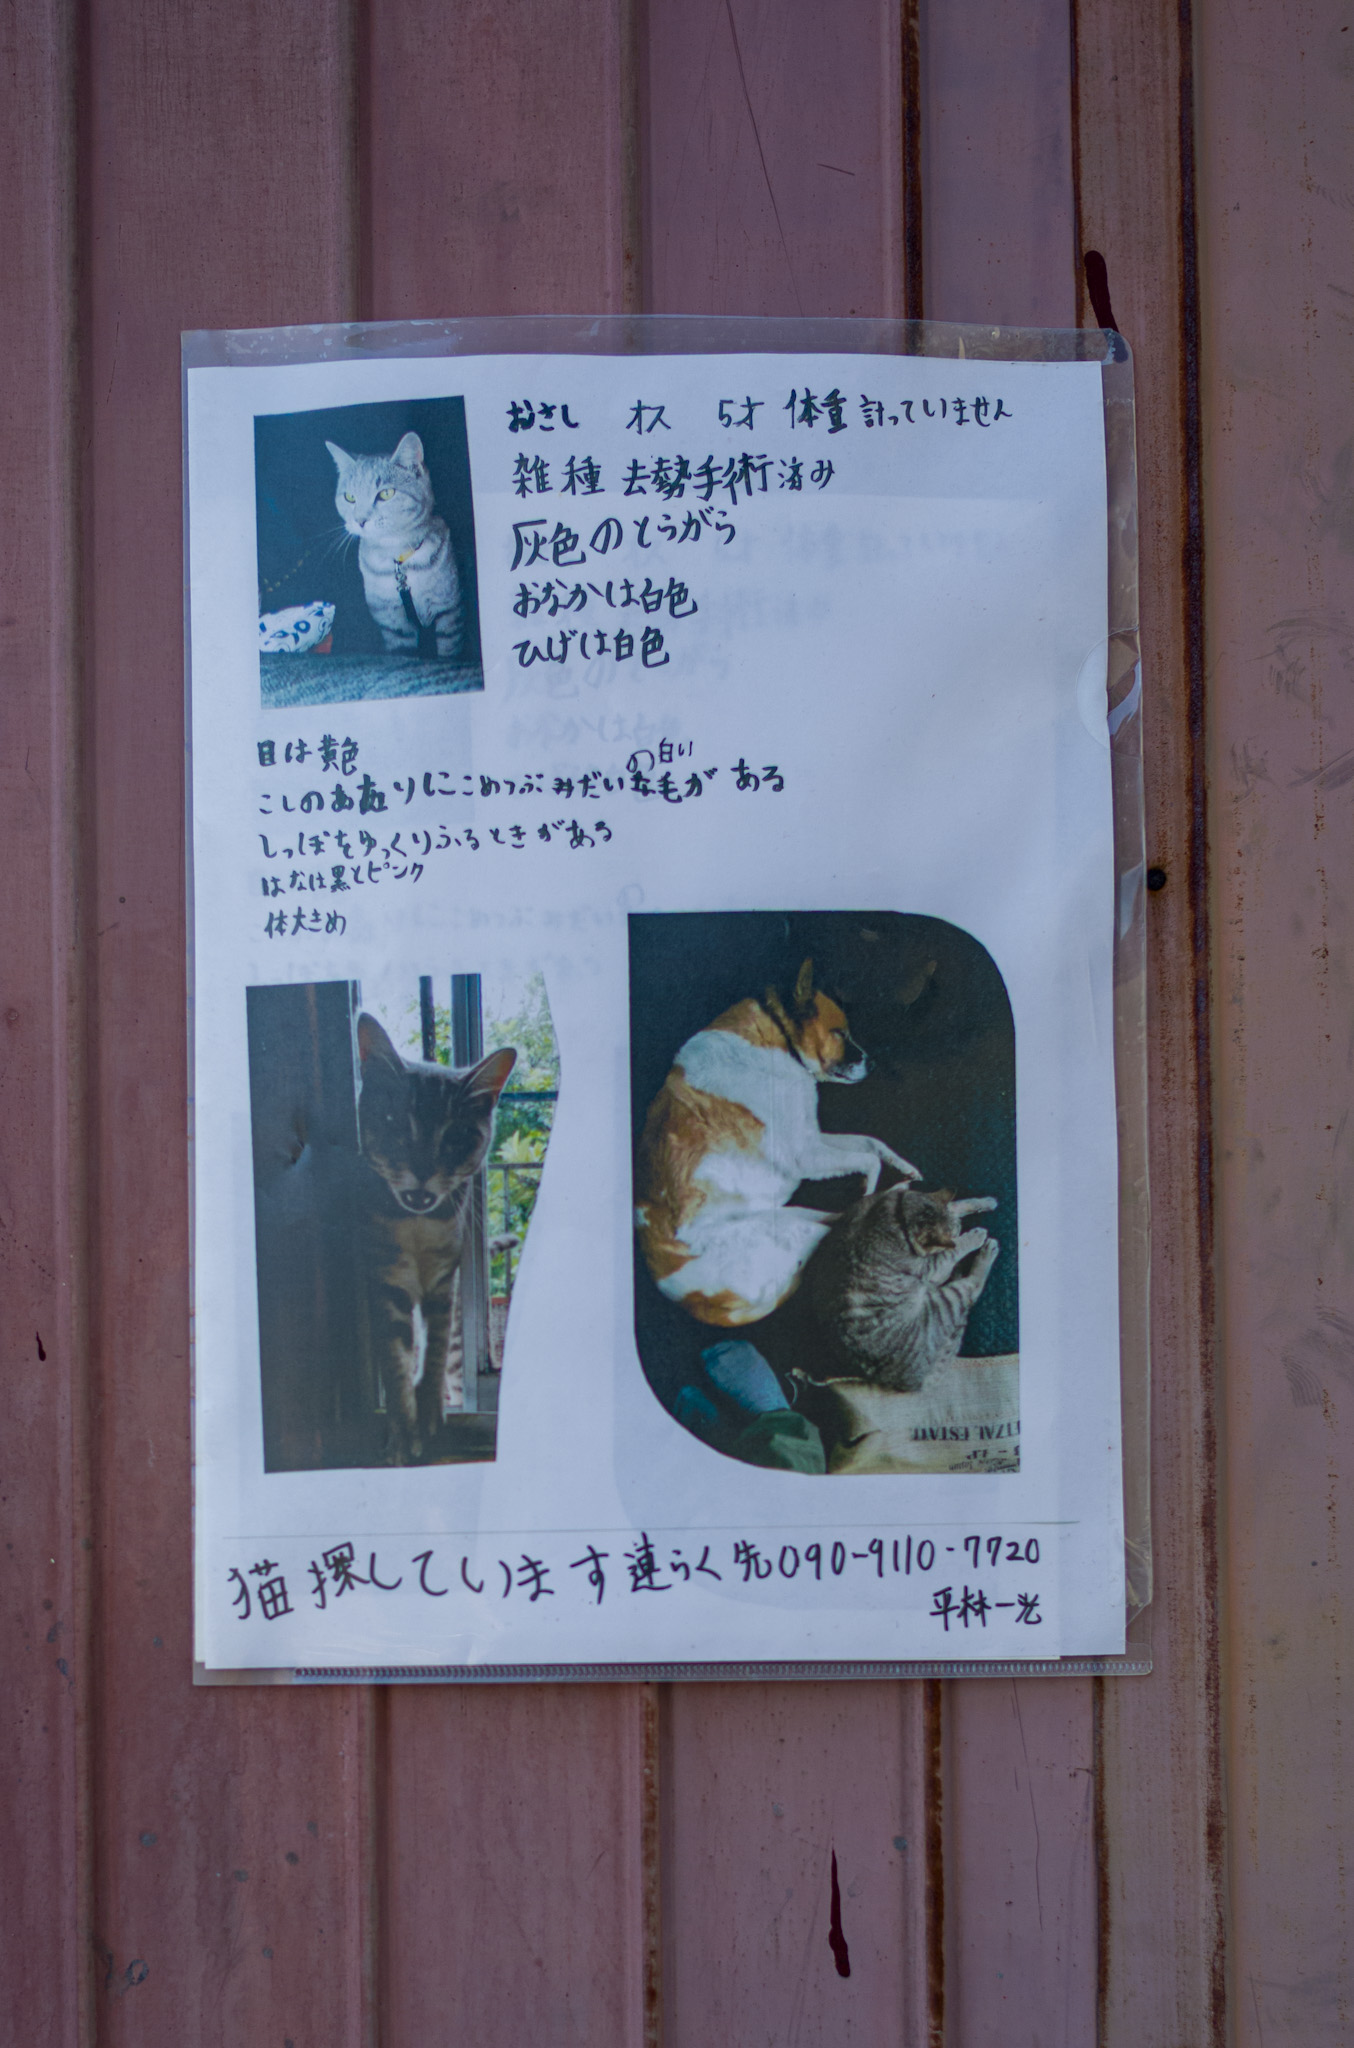 おさし オス 5才 体重計っていません
雑種 去勢手術済み
灰色のとらがら
おなかは白色
ひげは白色
目は黄色
の白い
こしのあたりにこめつぶみだい毛がある
しっぽをゆっくりふるときがある
はなは黒とピンク
体大きめ
猫探しています連らく先090-9110-7720
平林一光